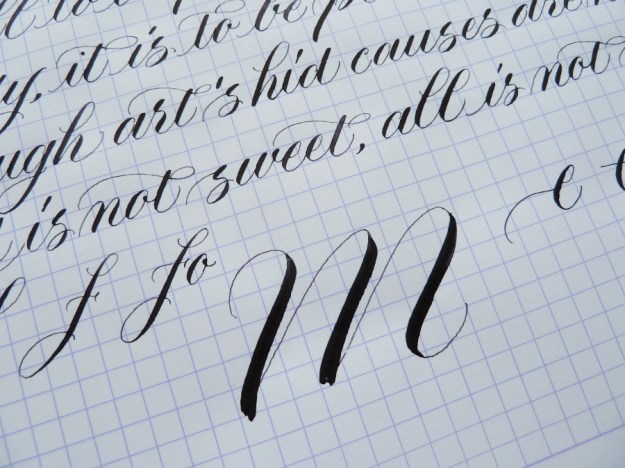 it is to be
art's hid causes are
is not sweet, all is not
f fo M e